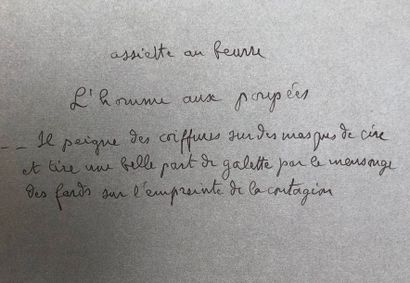 assiette au beurre
L'homme aux poupées
-- Il peigne des coiffures sur des masques de cire
et tire une belle part de galette par le mensonge
des fards sur l'empreinte de la contagion